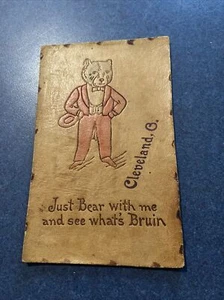 Cleveland, O.
Just Bear with me
and see what's Bruin